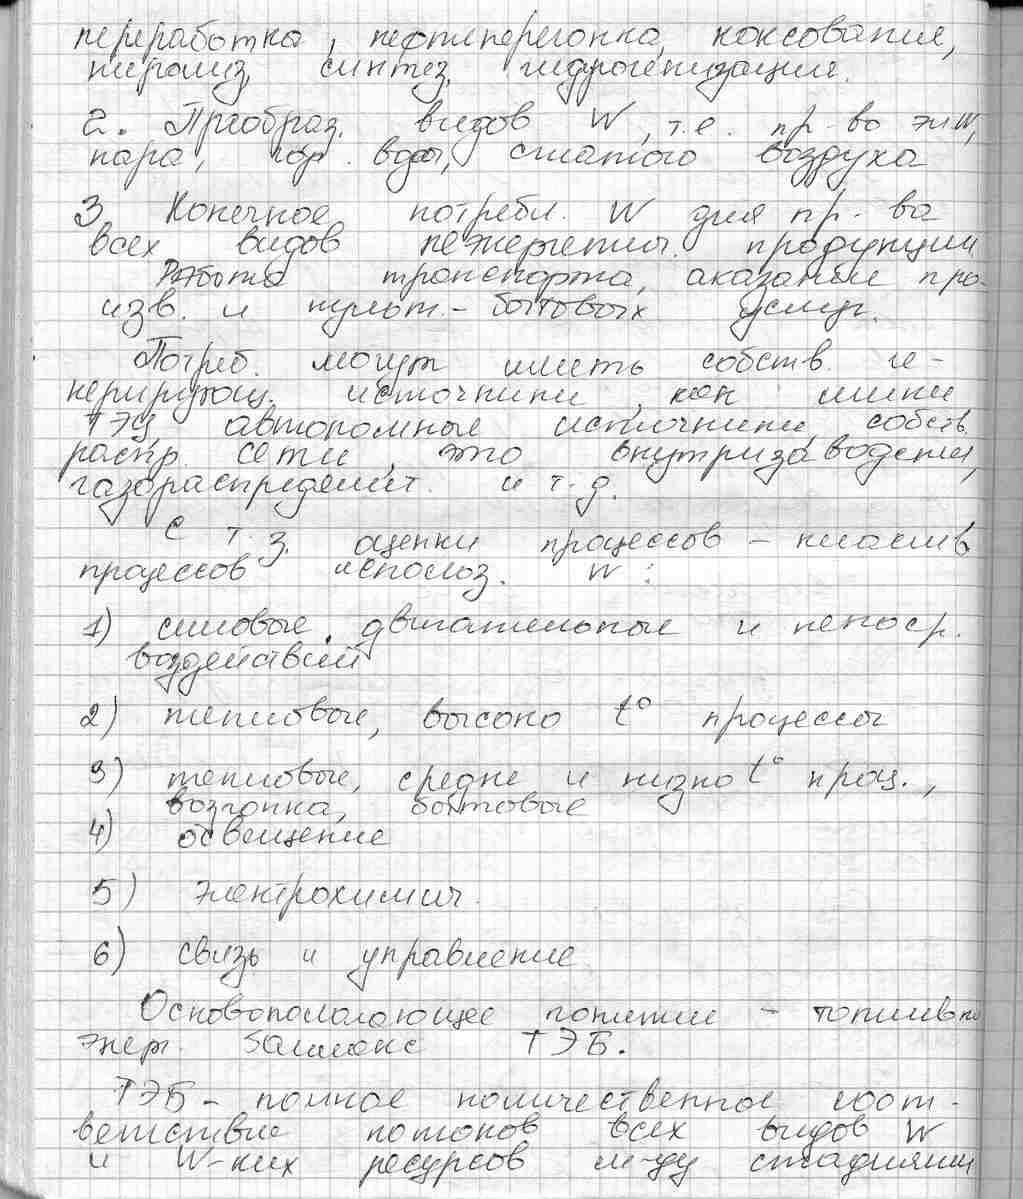 переработка, нефтеперегонка, коксование,
пиролиз, синтез, гидрогенизация.
2. Преобраз. видов W, т.е. пр-во эл.W,
пара, гор. воды, сжатого воздуха
3. Конечное потребл. W для пр-ва
всех видов неэнергетич. продукции
Работа транспорта, оказание про-
изв. и культ.-бытовых услуг.
Потреб. могут иметь собств. ге-
нерирующ. источники, как мини
ТЭЦ, автономные источники, собств.
распр. сети, это внутризаводские,
газораспределит. и т.д.
С т.з. оценки процессов – классив
процессов использ. W:
1) силовые, двигательные и непоср.
воздействий
2) тепловые, высоко t° процессы
3) тепловые, средне и низко t° проц.,
возгонка, бытовые
4) освещение
5) электрохимич.
6) связь и управление
Основополагающее понятие – топливно
энерг. баланс ТЭБ.
ТЭБ – полное количественное соот-
ветствие потоков всех видов W
и W-ких ресурсов м-ду стадиями